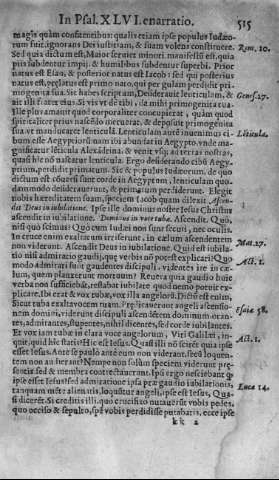 In Psal. XLVI. enarratio. 515
magis quàm constatibus: qualis etiam ipse populus Iudæo-
rum fuit, ignorans Dei iustitiam, & suam volens constituere. Rom. 10.
Sed quia dictum est, Maior serviet minori: manifestũ est, quia
pus subdentur impij, & humilibus subdentur superbi. Prior
natus est Esau, & posterior natus est Iacob: sed qui posterius
natus est, prælatus est primo nato, qui per gulam perdidit pri-
ma sua. Sic habes scriptum, Desideravit lenticulam, & Genes. 27.
ait illi frater eius: Si vis vt dẽ tibi, da mihi primogenita tua.
Ille plus amauit quod corporaliter concupierat, quàm quod
spiritaliter prius nascẽdo meruerat, & deposuit primogenita
sua, vt manducaret lenticulã. Lenticulam autẽ inuenimus ci- Lẽticula.
bum esse Aegyptiorũ: nam ibi abundat in Aegypto. vnde ma-
gnificatur lẽticula Alexãdrina, & venit vsq; ad terras nostras,
quasi hîc nõ nascatur lenticula. Ergo desiderando cibũ Aegy-
ptium, perdidit primatum. Sic & populus Iudæorum, de quo
dictum est: conuersi sunt corde in Aegyptum, lenticulam quo-
dammodo desiderauerunt, & primatum perdiderunt. Elegit
nobis hæreditatem suam, speciem Iacob quam dilexit. Ascen-
dit Deus in iubilatione. Ipse ille dominus noster Iesus Christus
ascendit in iubilatione. Dominus in voce tubæ. Ascendit. Quò,
nisi quò scimus? Quò eum Iudæi non sunt secuti, nec oculis.
In cruce enim exaltatum irriserunt, in cælum ascendentem Mat. 27.
non viderunt. Ascendit Deus in iubilatione. Quid est iubila-
tio nisi admiratio gaudij, quæ verbis nõ potest explicari? Quo-
modo admirati sunt gaudentes discipuli, videntes ire in cæ- Act. 1.
lum, quem planxerant mortuum? Reuera quia gaudio huic
verba non sufficiebãt, restabat iubilare quod nemo poterat ex-
plicare. Ibi erat & vox tubæ, vox illa angelorũ. Dictũ est enim,
Sicut tuba exalta vocem tuam. Prædicauerunt angeli ascensio- Esaiæ 58.
nem domini, viderunt discipuli ascendẽtem dominum: oran-
tes, admirantes, stupentes, nihil dicentes, sed corde iubilantes.
Et vox iam tubæ in clara voce angelorum, Viri Galilæi, in-
quit, quid hîc statis? Hic est Iesus. Quasi illi nõ sciret quia ipse Act. 1.
esset Iesus. Ante se paulò antè eum non viderant, secũ loquen-
tem non audierant? Nempe non solùm speciem viderunt præ-
sentis: sed & membra contrectauerunt. Ipsi ergo nesciebant q̃
ipse esset Iesus? sed admiratione ipsa præ gaudio iubilationis, Lucæ 24.
tanquam mẽte alienatis, loquuntur angeli, ipse est Iesus. Qua-
si dicerẽt, Si creditis illi, quo crucifixo nutauerũt vobis pedes,
quo occiso & sepulto, spẽ vobis perdidisse putabatis, ecce ipse
kk 2